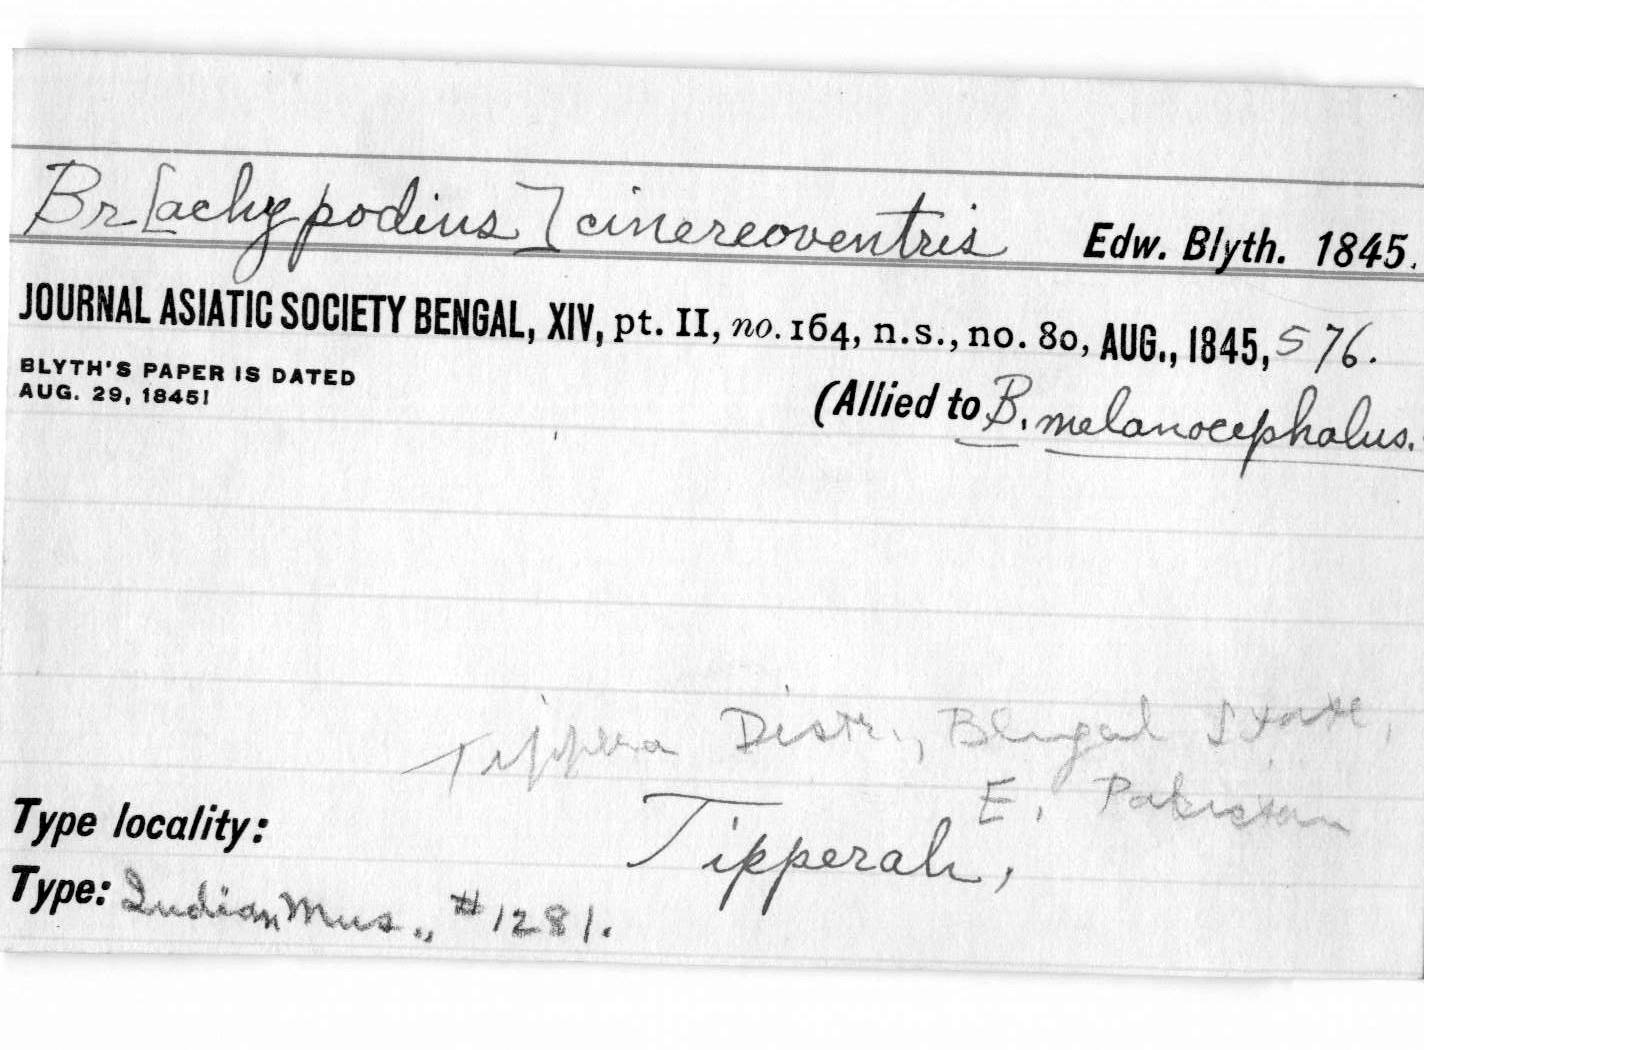 Br[achypodius] cinereoventris Edw. Blyth. 1845.
JOURNAL ASIATIC SOCIETY BENGAL, XIV, pt. II, no. 164, n.s., no. 80, AUG., 1845, 576.
BLYTH'S PAPER IS DATED
AUG. 29, 1845!
(Allied to B. melanocephalus.
Tippera Distr., Bengal State,
E. Pakistan
Type locality: Tipperah,
Type: Indian Mus., #1281.